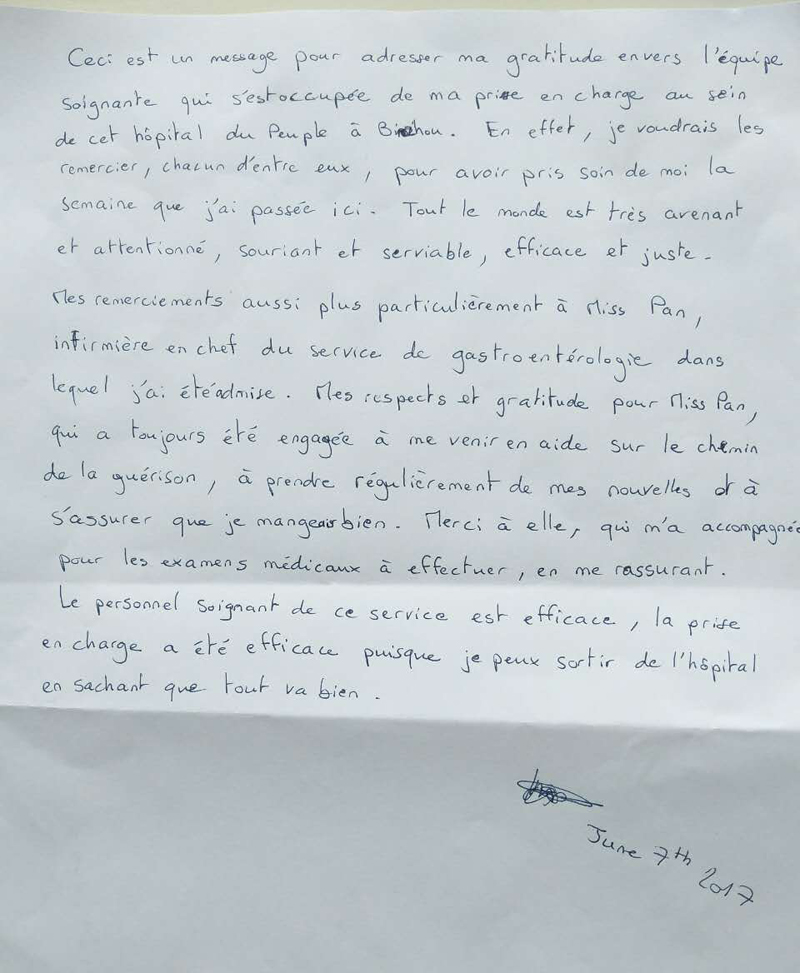 Ceci est un message pour adresser ma gratitude envers l'équipe
soignante qui s'est occupée de ma prise en charge au sein
de cet hôpital du Peuple à Binzhou. En effet, je voudrais les
remercier, chacun d'entre eux, pour avoir pris soin de moi la
semaine que j'ai passée ici. Tout le monde est très avenant
et attentionné, souriant et serviable, efficace et juste.
Mes remerciements aussi plus particulièrement à Miss Pan,
infirmière en chef du service de gastroentérologie dans
lequel j'ai été admise. Mes respects et gratitude pour Miss Pan,
qui a toujours été engagée à me venir en aide sur le chemin
de la guérison, à prendre régulièrement de mes nouvelles et à
s'assurer que je mangeais bien. Merci à elle, qui m'a accompagnée
pour les examens médicaux à effectuer, en me rassurant.
Le personnel soignant de ce service est efficace, la prise
en charge a été efficace puisque je peux sortir de l'hôpital
en sachant que tout va bien.
June 7th 2017